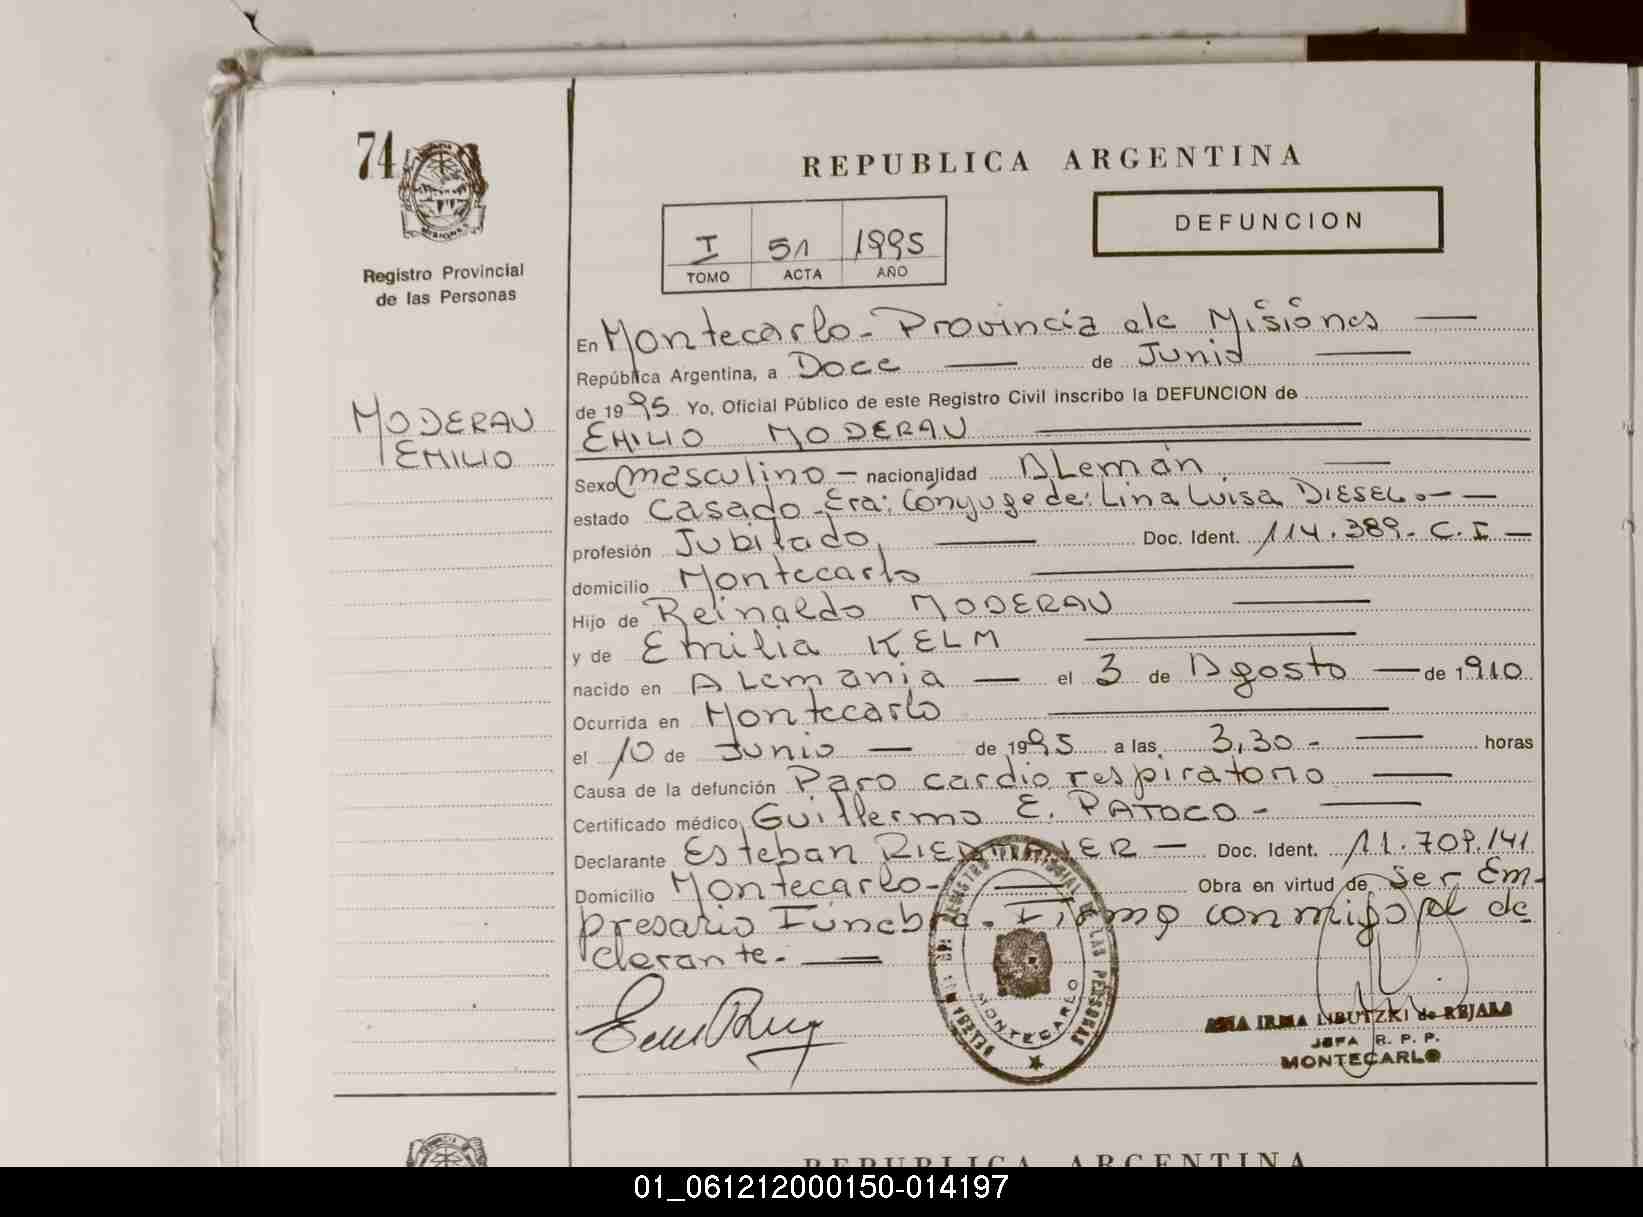 74
REPUBLICA ARGENTINA
DEFUNCION
I 51 1995
TOMO ACTA AÑO
Registro Provincial
de las Personas
MODERAU
EMILIO
En Montecarlo - Provincia de Misiones
República Argentina, a Doce de Junio
de 1995 Yo, Oficial Público de este Registro Civil inscribo la DEFUNCION de
EMILIO MODERAU
Sexo masculino - nacionalidad Alemán
estado Casado - Era: Cónyuge de: Lina Luisa DIESEL.- -
profesión Jubilado, Doc. Ident. 114.389. C.I -
domicilio Montecarlo
Hijo de Reinaldo MODERAU
y de Emilia KELM
nacido en Alemania - el 3 de Agosto - de 1910
Ocurrida en Montecarlo
el 10 de Junio - de 1995 a las 3,30 - horas
Causa de la defunción Paro cardio respiratorio
Certificado médico Guillermo E. PATOCO -
Declarante Esteban Doc. Ident. 11.709.141
Domicilio Montecarlo - Obra en virtud de ser Em-
presario Fúnebre. Firma conmigo el de
clarante.
MONTECARLO
LAS PERSONAS
IRMA LIBUTZKI de REJALA
JEFA R. P. P.
MONTECARLO
REPUBLICA ARGENTINA
01_061212000150-014197